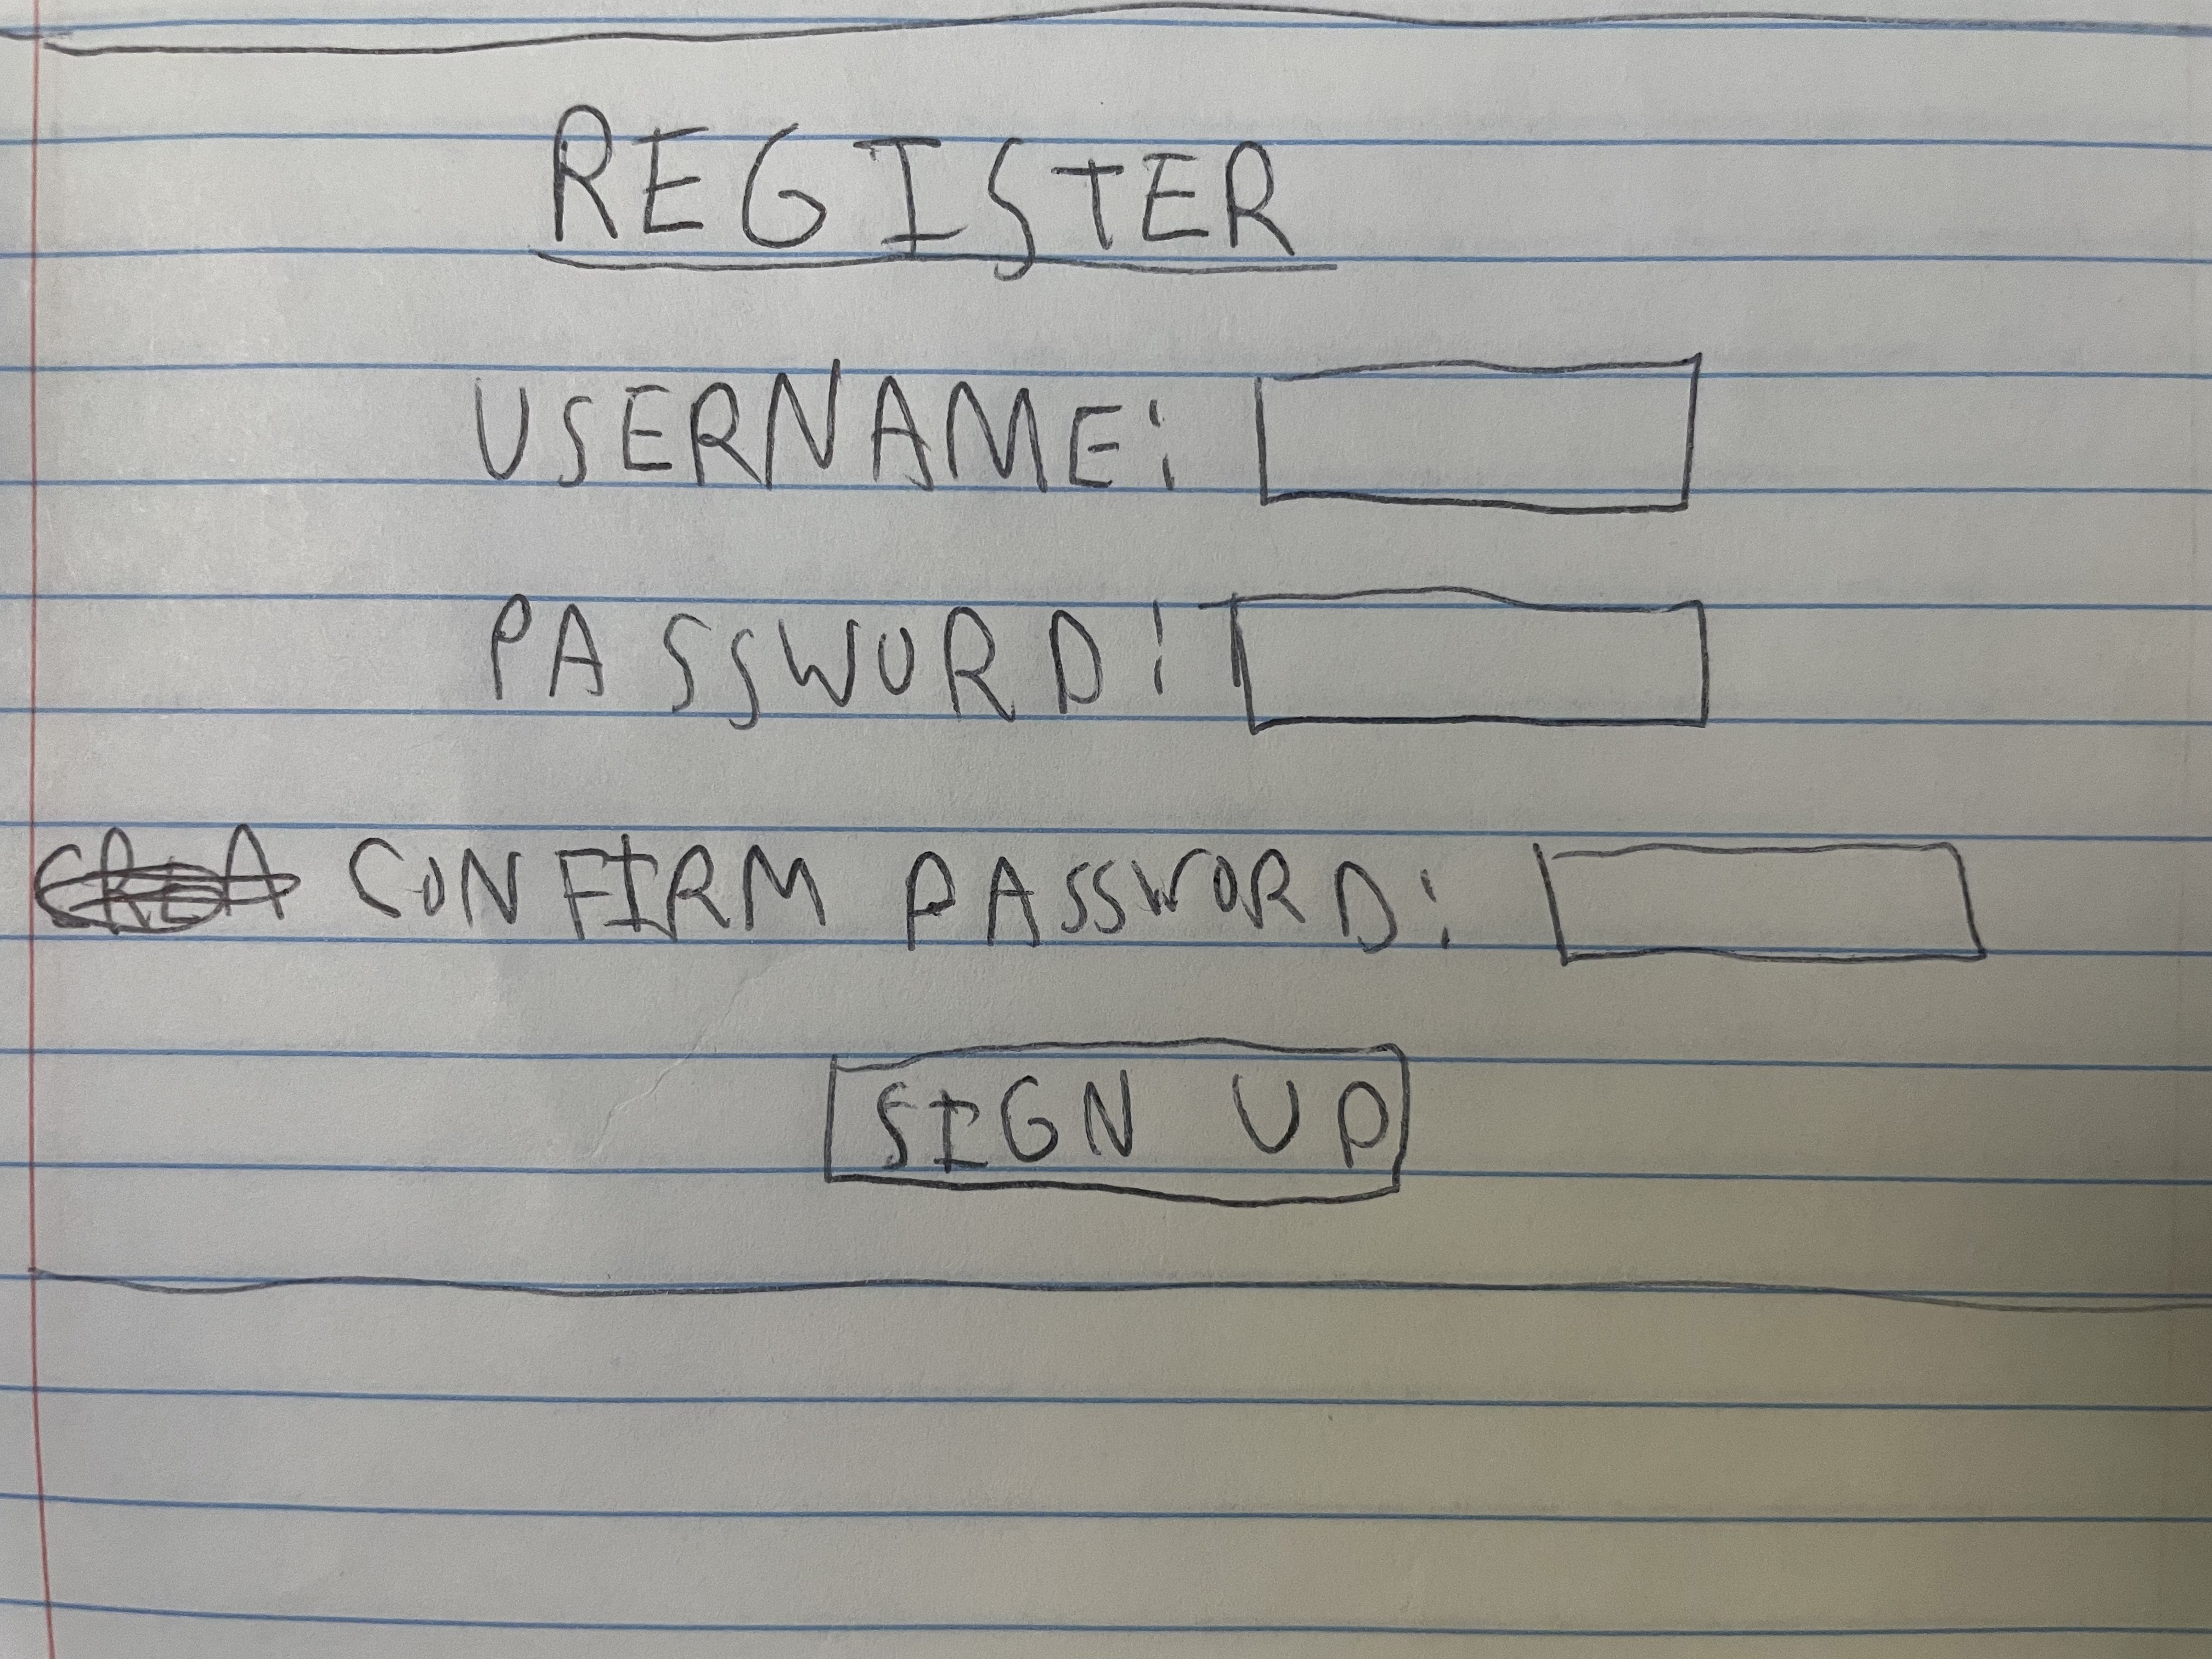 REGISTER
USERNAME:
PASSWORD:
CONFIRM PASSWORD:
SIGN UP